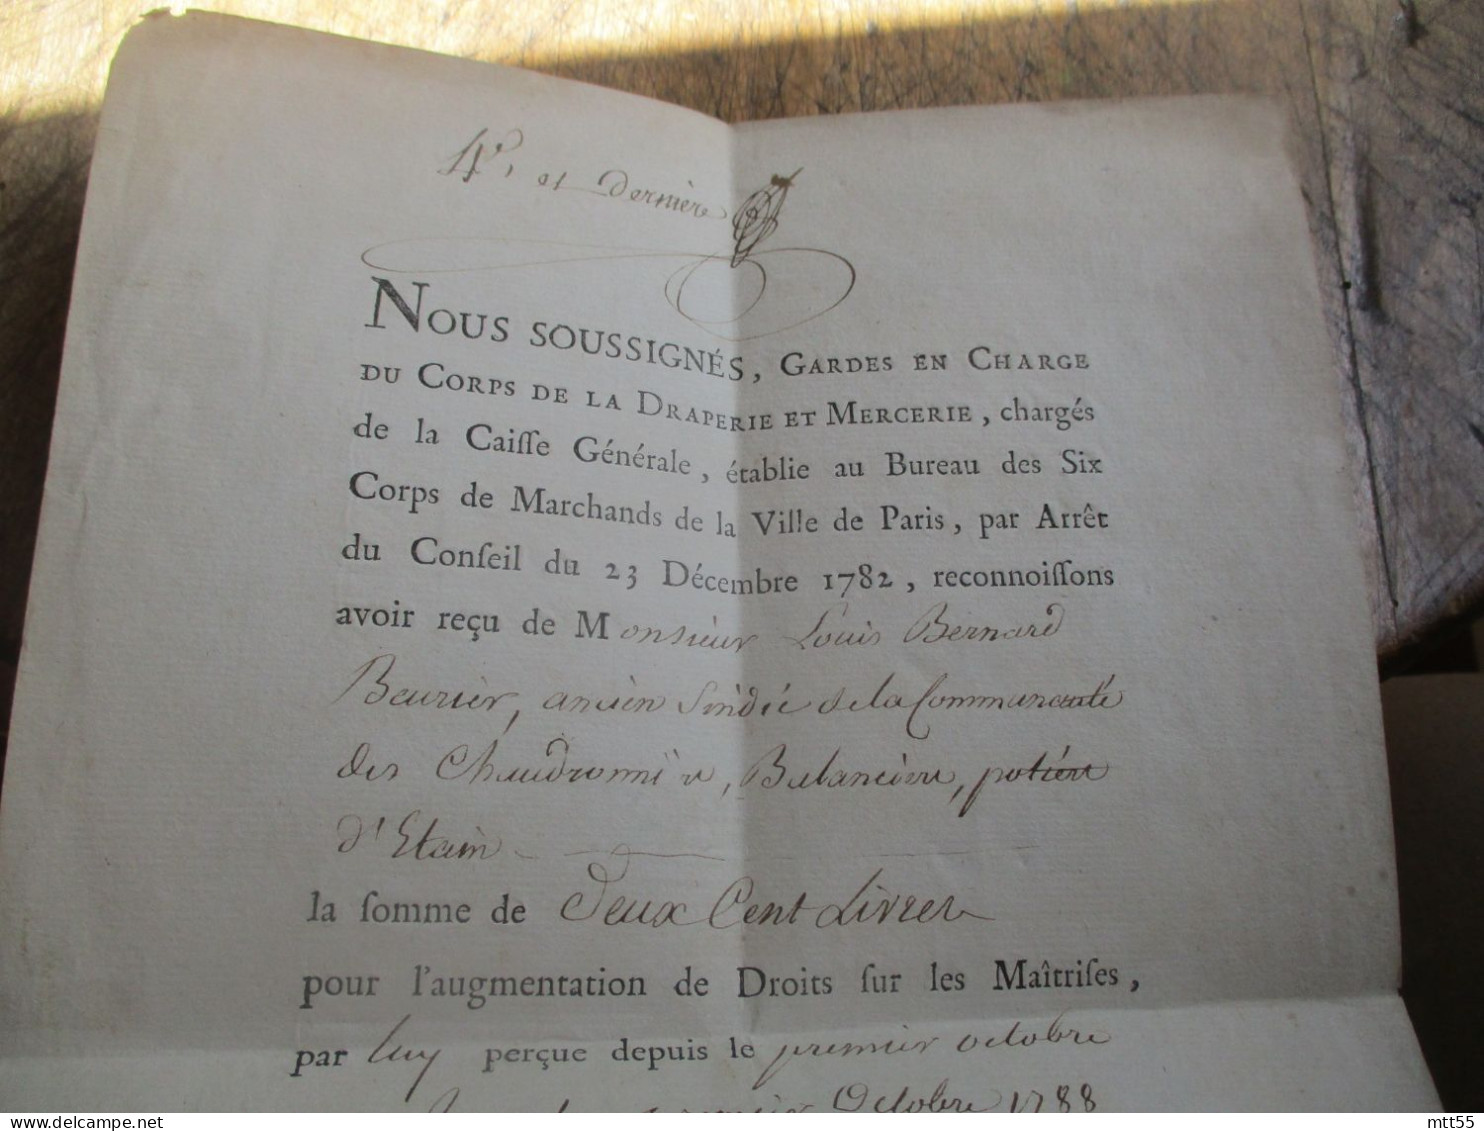 4e. et dernière
NOUS SOUSSIGNÉS, GARDES EN CHARGE
DU CORPS DE LA DRAPERIE ET MERCERIE, chargés
de la Caiſſe Générale, établie au Bureau des Six
Corps de Marchands de la Ville de Paris, par Arrêt
du Conſeil du 23 Décembre 1782, reconnoiſſons
avoir reçu de Monsieur Louis Bernard
Beurier, ancien Sindic de la Communauté
des Chaudronniers, Balanciers, potiers
d'Etain
la ſomme de Deux Cent Livres
pour l'augmentation de Droits ſur les Maîtriſes,
par luy perçue depuis le premier octobre
Octobre 1788
mtt55